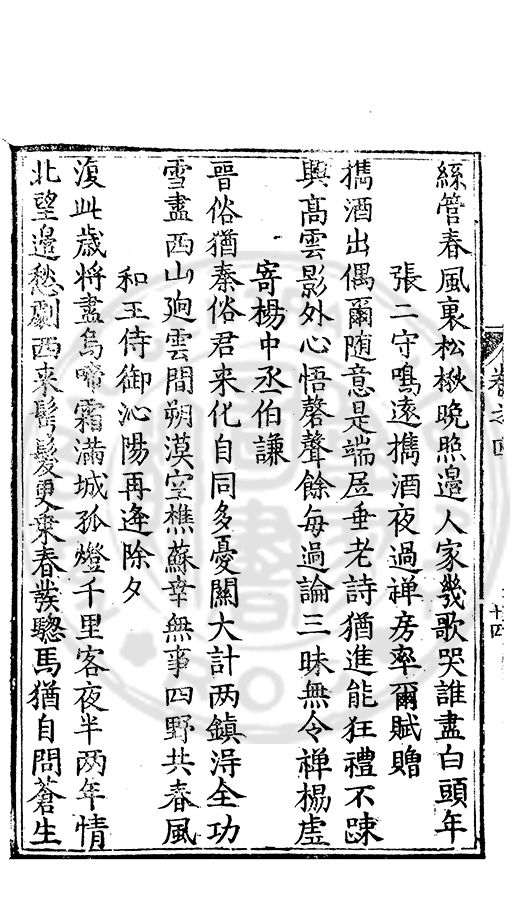 絲管春風裏松楸晚照邊人家幾歌哭誰盡白頭年
張二守鳴遠攜酒夜過禅房率爾賦贈
攜酒出偶爾随意是端居垂老詩猶進能狂禮不踈
興高雲影外心悟磬聲餘每過論三昧無令禅榻虗
寄楊中丞伯謙
晉俗猶秦俗君来化自同多憂關大計两鎮淂全功
雪盡西山逈雲間朔漠空樵蘇幸無事四野共春風
和王侍御沁陽再逢除夕
復此歲将盡烏啼霜滿城孤燈千里客夜半两年情
北望邉愁劇西来髩髮更東春發驄馬猶自問蒼生
卷之四
廿四